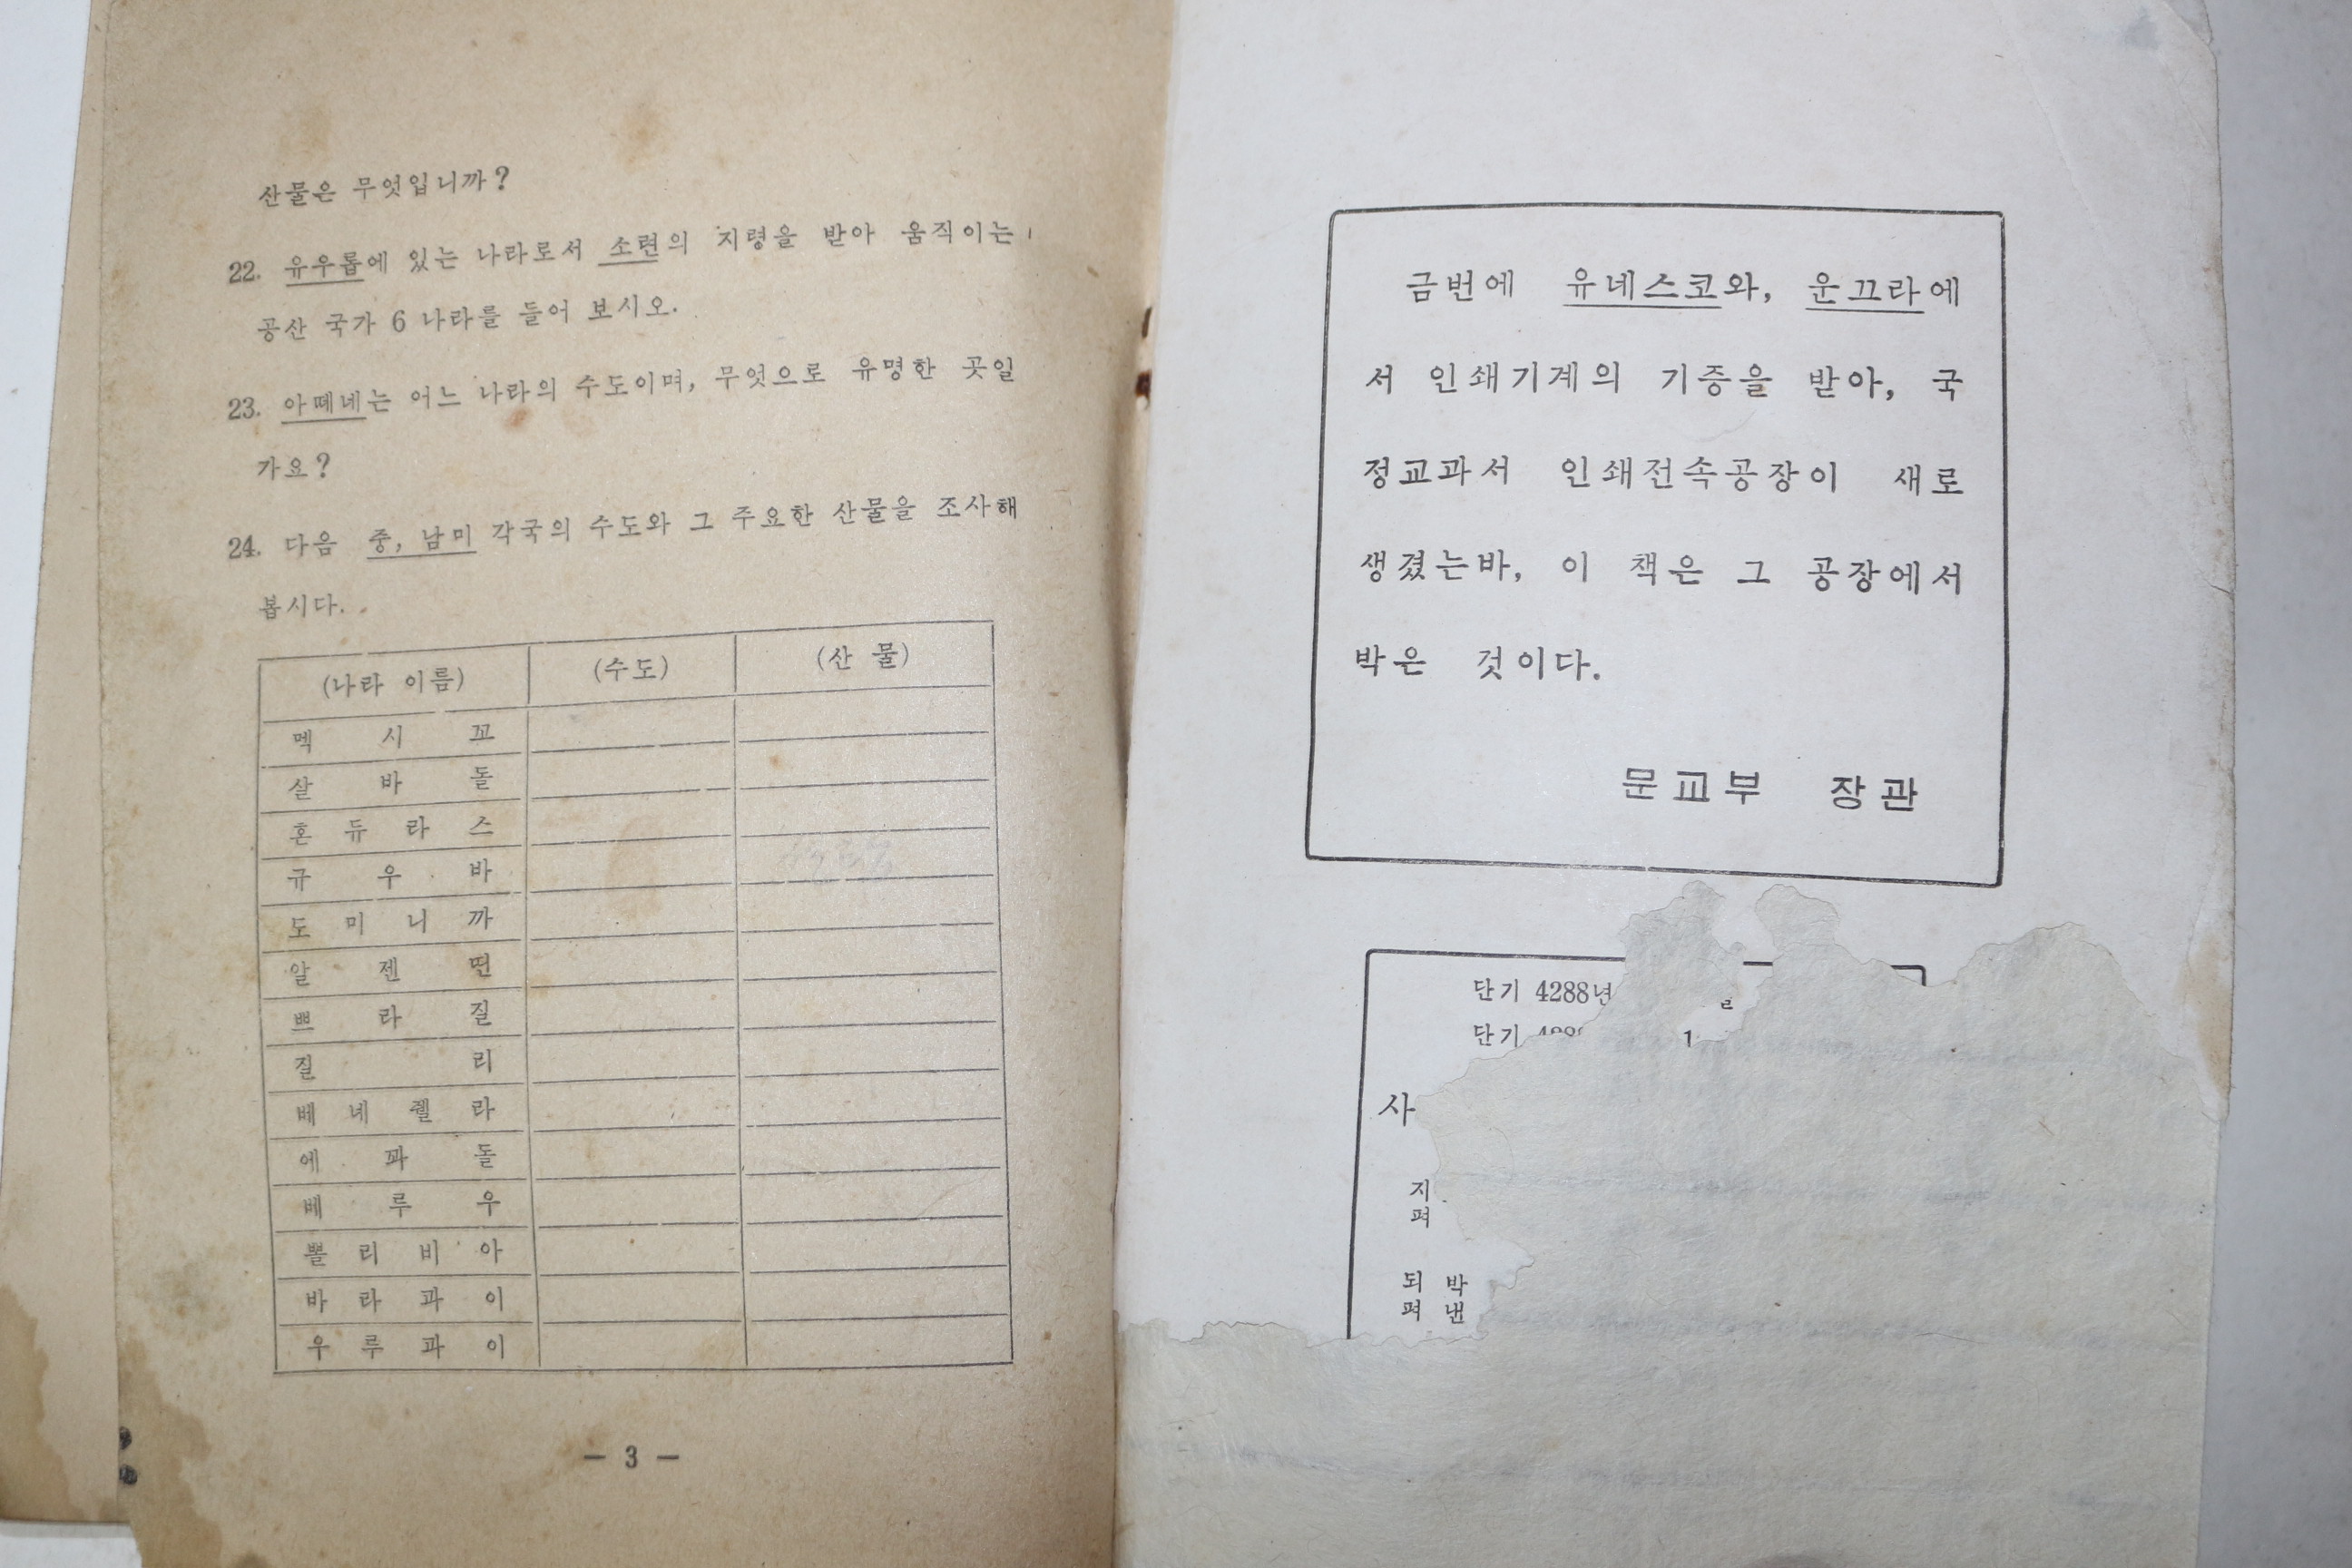 산물은 무엇입니까?
22. 유우롭에 있는 나라로서 소련의 지령을 받아 움직이는
공산 국가 6 나라를 들어 보시오.
23. 아떼네는 어느 나라의 수도이며, 무엇으로 유명한 곳일
가요?
24. 다음 중, 남미 각국의 수도와 그 주요한 산물을 조사해
봅시다.
(나라 이름) (수도) (산 물)
멕 시 꼬
살 바 돌
혼 듀 라 스
규 우 바
도 미 니 까
알 젠 띤
쁘 라 질
질 리
베 네 쥍 라
에 꽈 돌
뻬 루 우
뽈 리 비 아
바 라 과 이
우 루 과 이
— 3 —
금번에 유네스코와, 운끄라에
서 인쇄기계의 기증을 받아, 국
정교과서 인쇄전속공장이 새로
생겼는바, 이 책은 그 공장에서
박은 것이다.
문교부 장관
단기 4288년
단기
사
지
펴
되 박
펴 낸